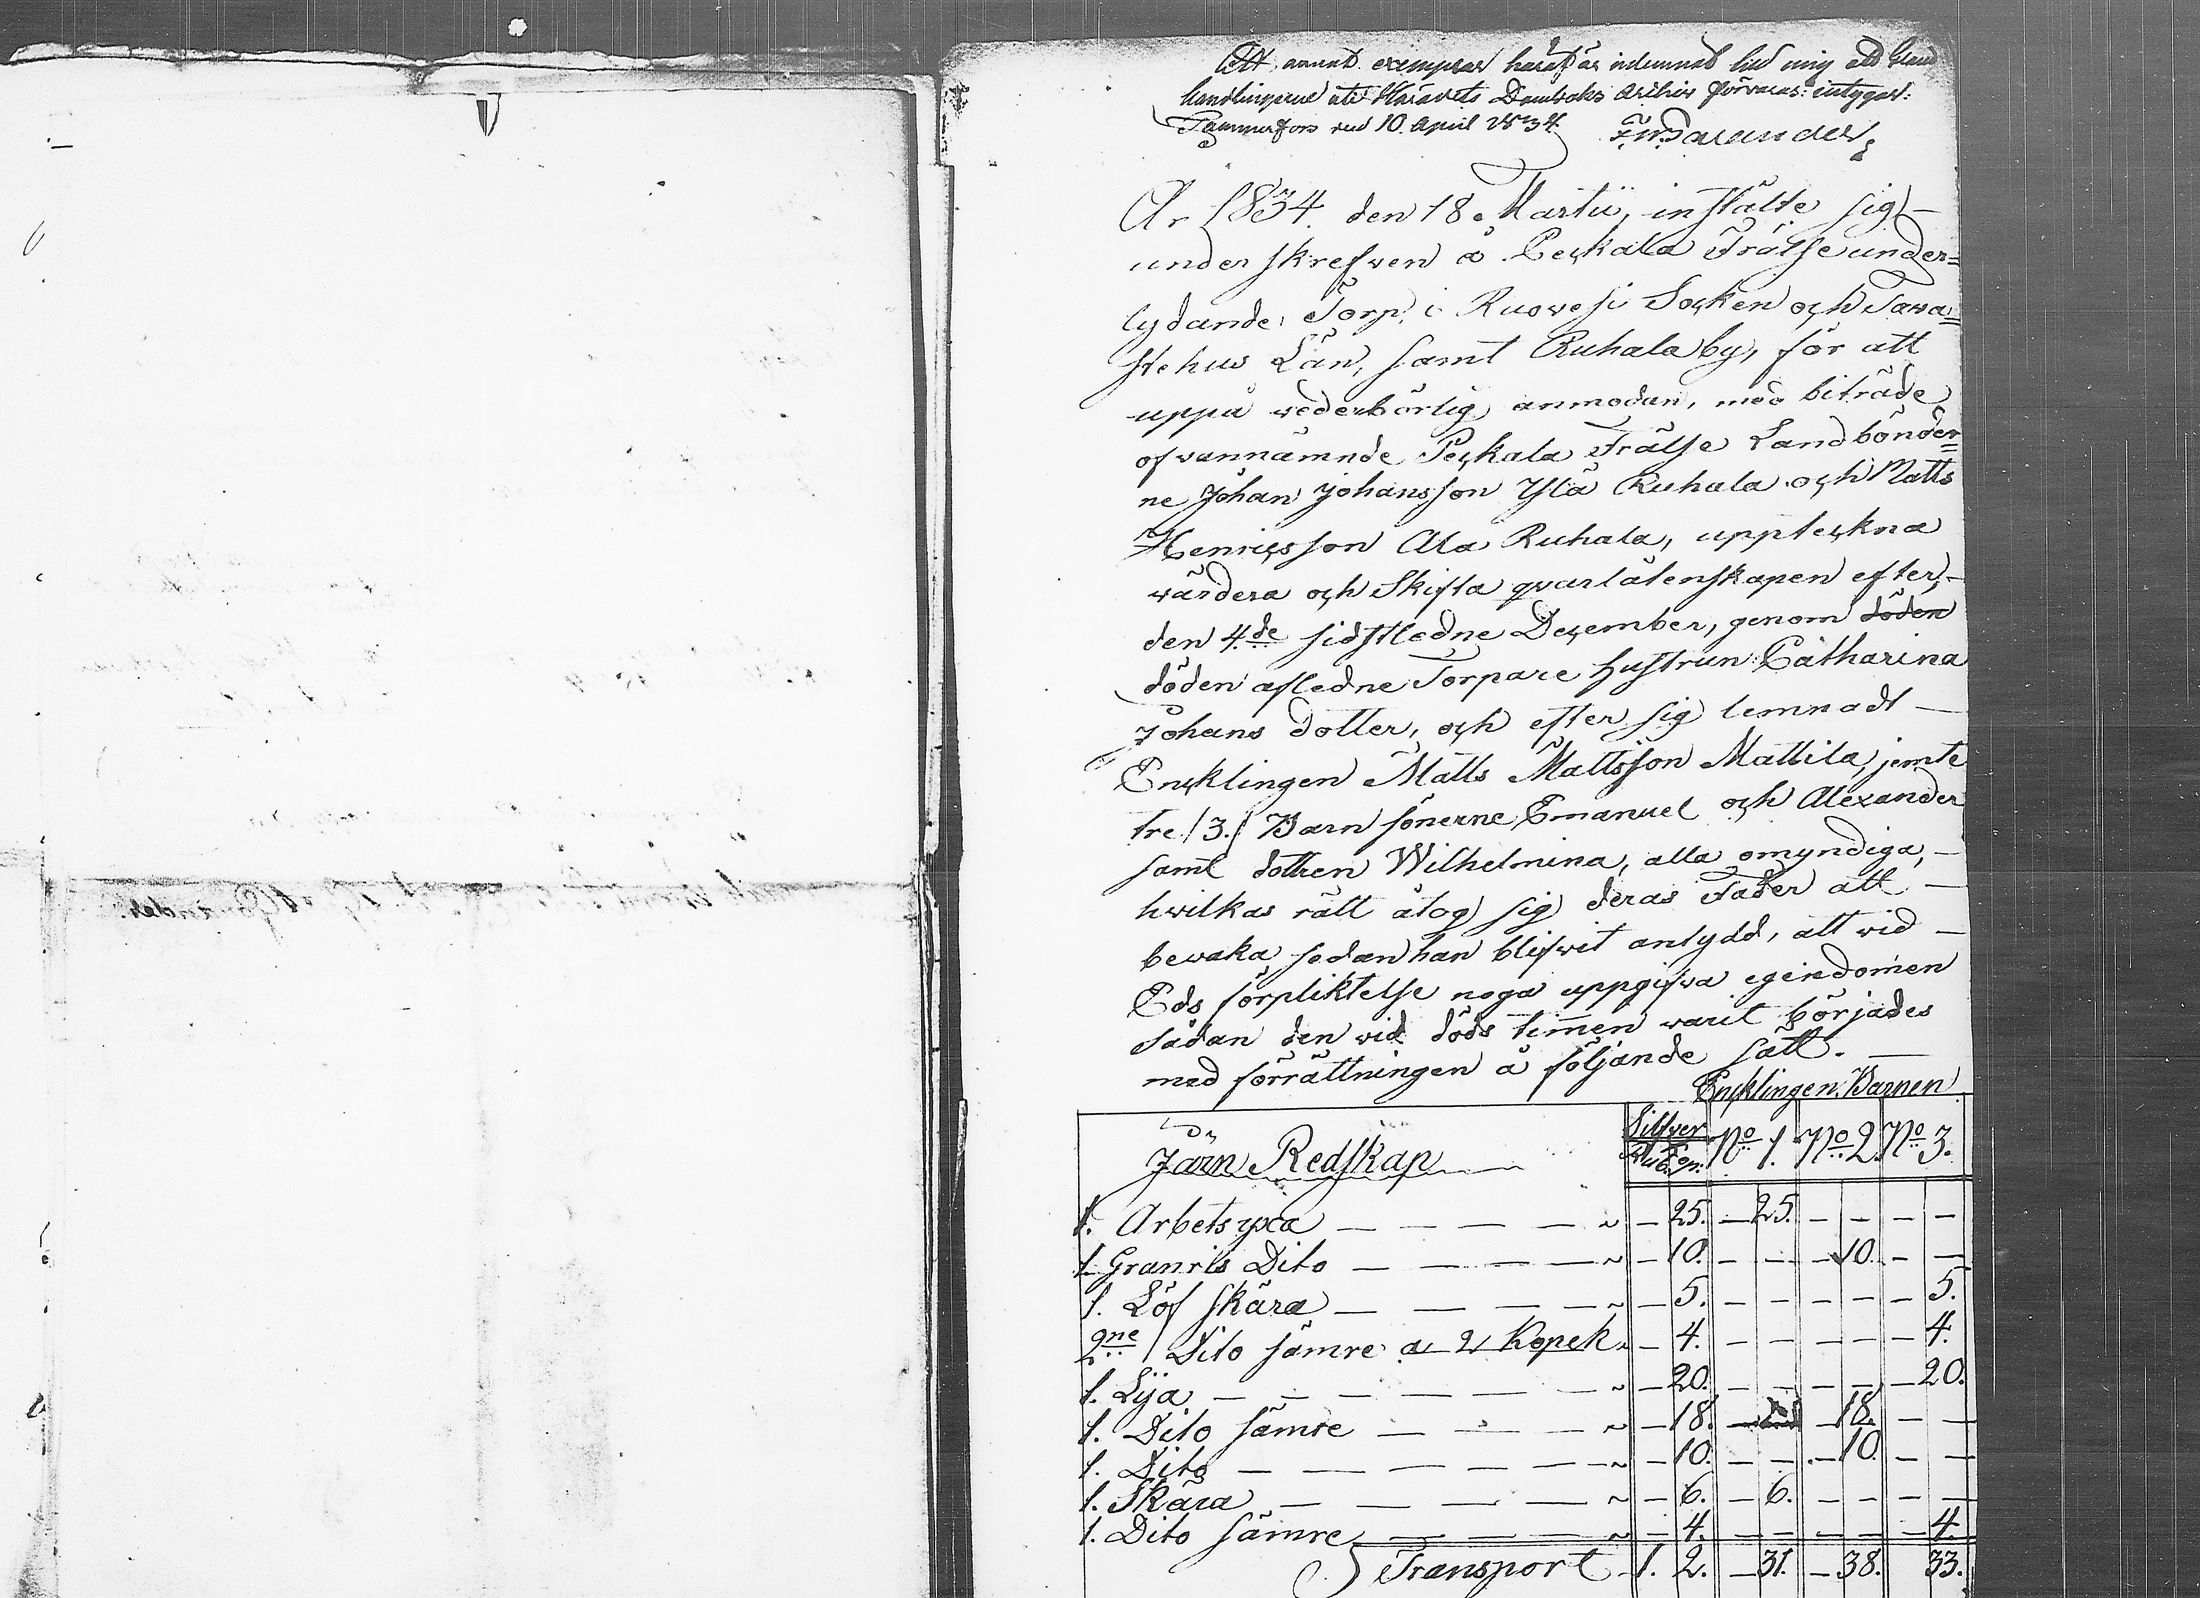 Ett annat exemplar häraf är inlemnadt hud mig att bland
handlingarne uti Häradets Domboks Arkiv förvaras: intygar:
Tammerfors den 10. April 1834.
År 1834. den 18 Martii, instälte sig
underskrefven å Peçkala Frälse under=
lydande Torp i Ruovesi Soçken oçh Tawa=
stehus Län, samt Ruhala by, för att
uppå wederbörlig anmodan, med biträde
ofvannämnde Peçkala Frälse Landbönder=
ne Johan Johansson Ylä Ruhala oçh Matts
Henriçsson Ala Ruhala, uppteçkna
wärdera oçh Skifta qvarlåtenskapen efter,
den 4.de sidstledne Deçember, genom döden
döden afledne Torpare hustrun Catharina
Johans dotter, oçh efter sig lemnadt
Ençklingen Matts Mattsson Mattila, jemte
tre /3./ Barn sönerne Emanuel oçh Alexander
samt dottren Wilhelmina, alla omyndiga,
hwilkas rätt åtog sig deras Fader att
bevaka sedan han blifwit antydd, att wid
Eds förpliktelse noga uppgifva egendomen
sådan den wid döds timen warit börjades
med förrättningen å följande sätt.
Ençklingen. Barnen
Järn Redskap Silfver Rub. Cop: No 1. No 2. No 3.
1. Arbets yxa — — — — ~ — 25. — 25. — — — —
1. Granris Dito — — — — ~ — 10. — — — 10. — —
1. Löf skära — — — — ~ — 5. — — — — — 5.
2ne Dito sämre a 2 Kopek ~ — 4. — — — — — 4.
1. Lija — — — — — ~ — 20. — — — — — 20.
1. Dito sämre — — — ~ — 18. — — 18. — —
1. Dito — — — — — ~ — 10. — — — 10. — —
1. Skära — — — — ~ — 6. — 6. — — — —
1. Dito sämre — — — — ~ — 4. — — — — — 4.
Transport 1. 2. — 31. — 38. 33.